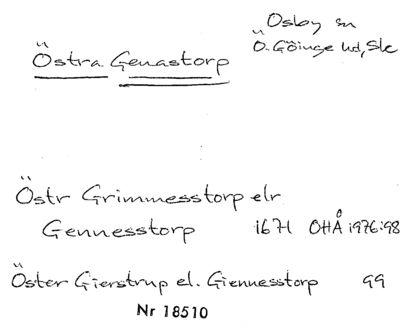 Östra Genastorp
Osby sn
Ö. Göinge hd, Sk
Östr Grimmesstorp elr
Gennesstorp 1671 OHÅ 1976:98
Öster Gierstrup el. Giennesstorp 99
Nr 18510